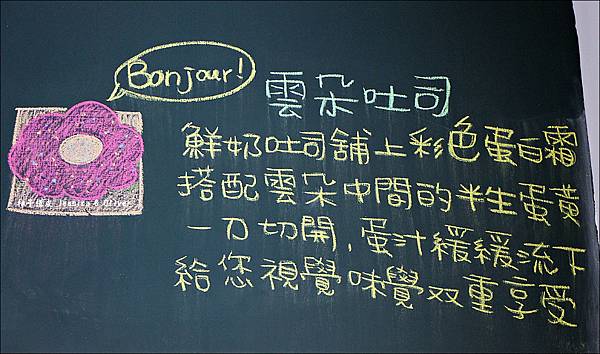 Bonjour!
雲朵吐司
鮮奶吐司舖上彩色蛋白霜
搭配雲朵中間的半生蛋黃
一刀切開,蛋汁緩緩流下
給您視覺味覺双重享受
Jessica & Oliver